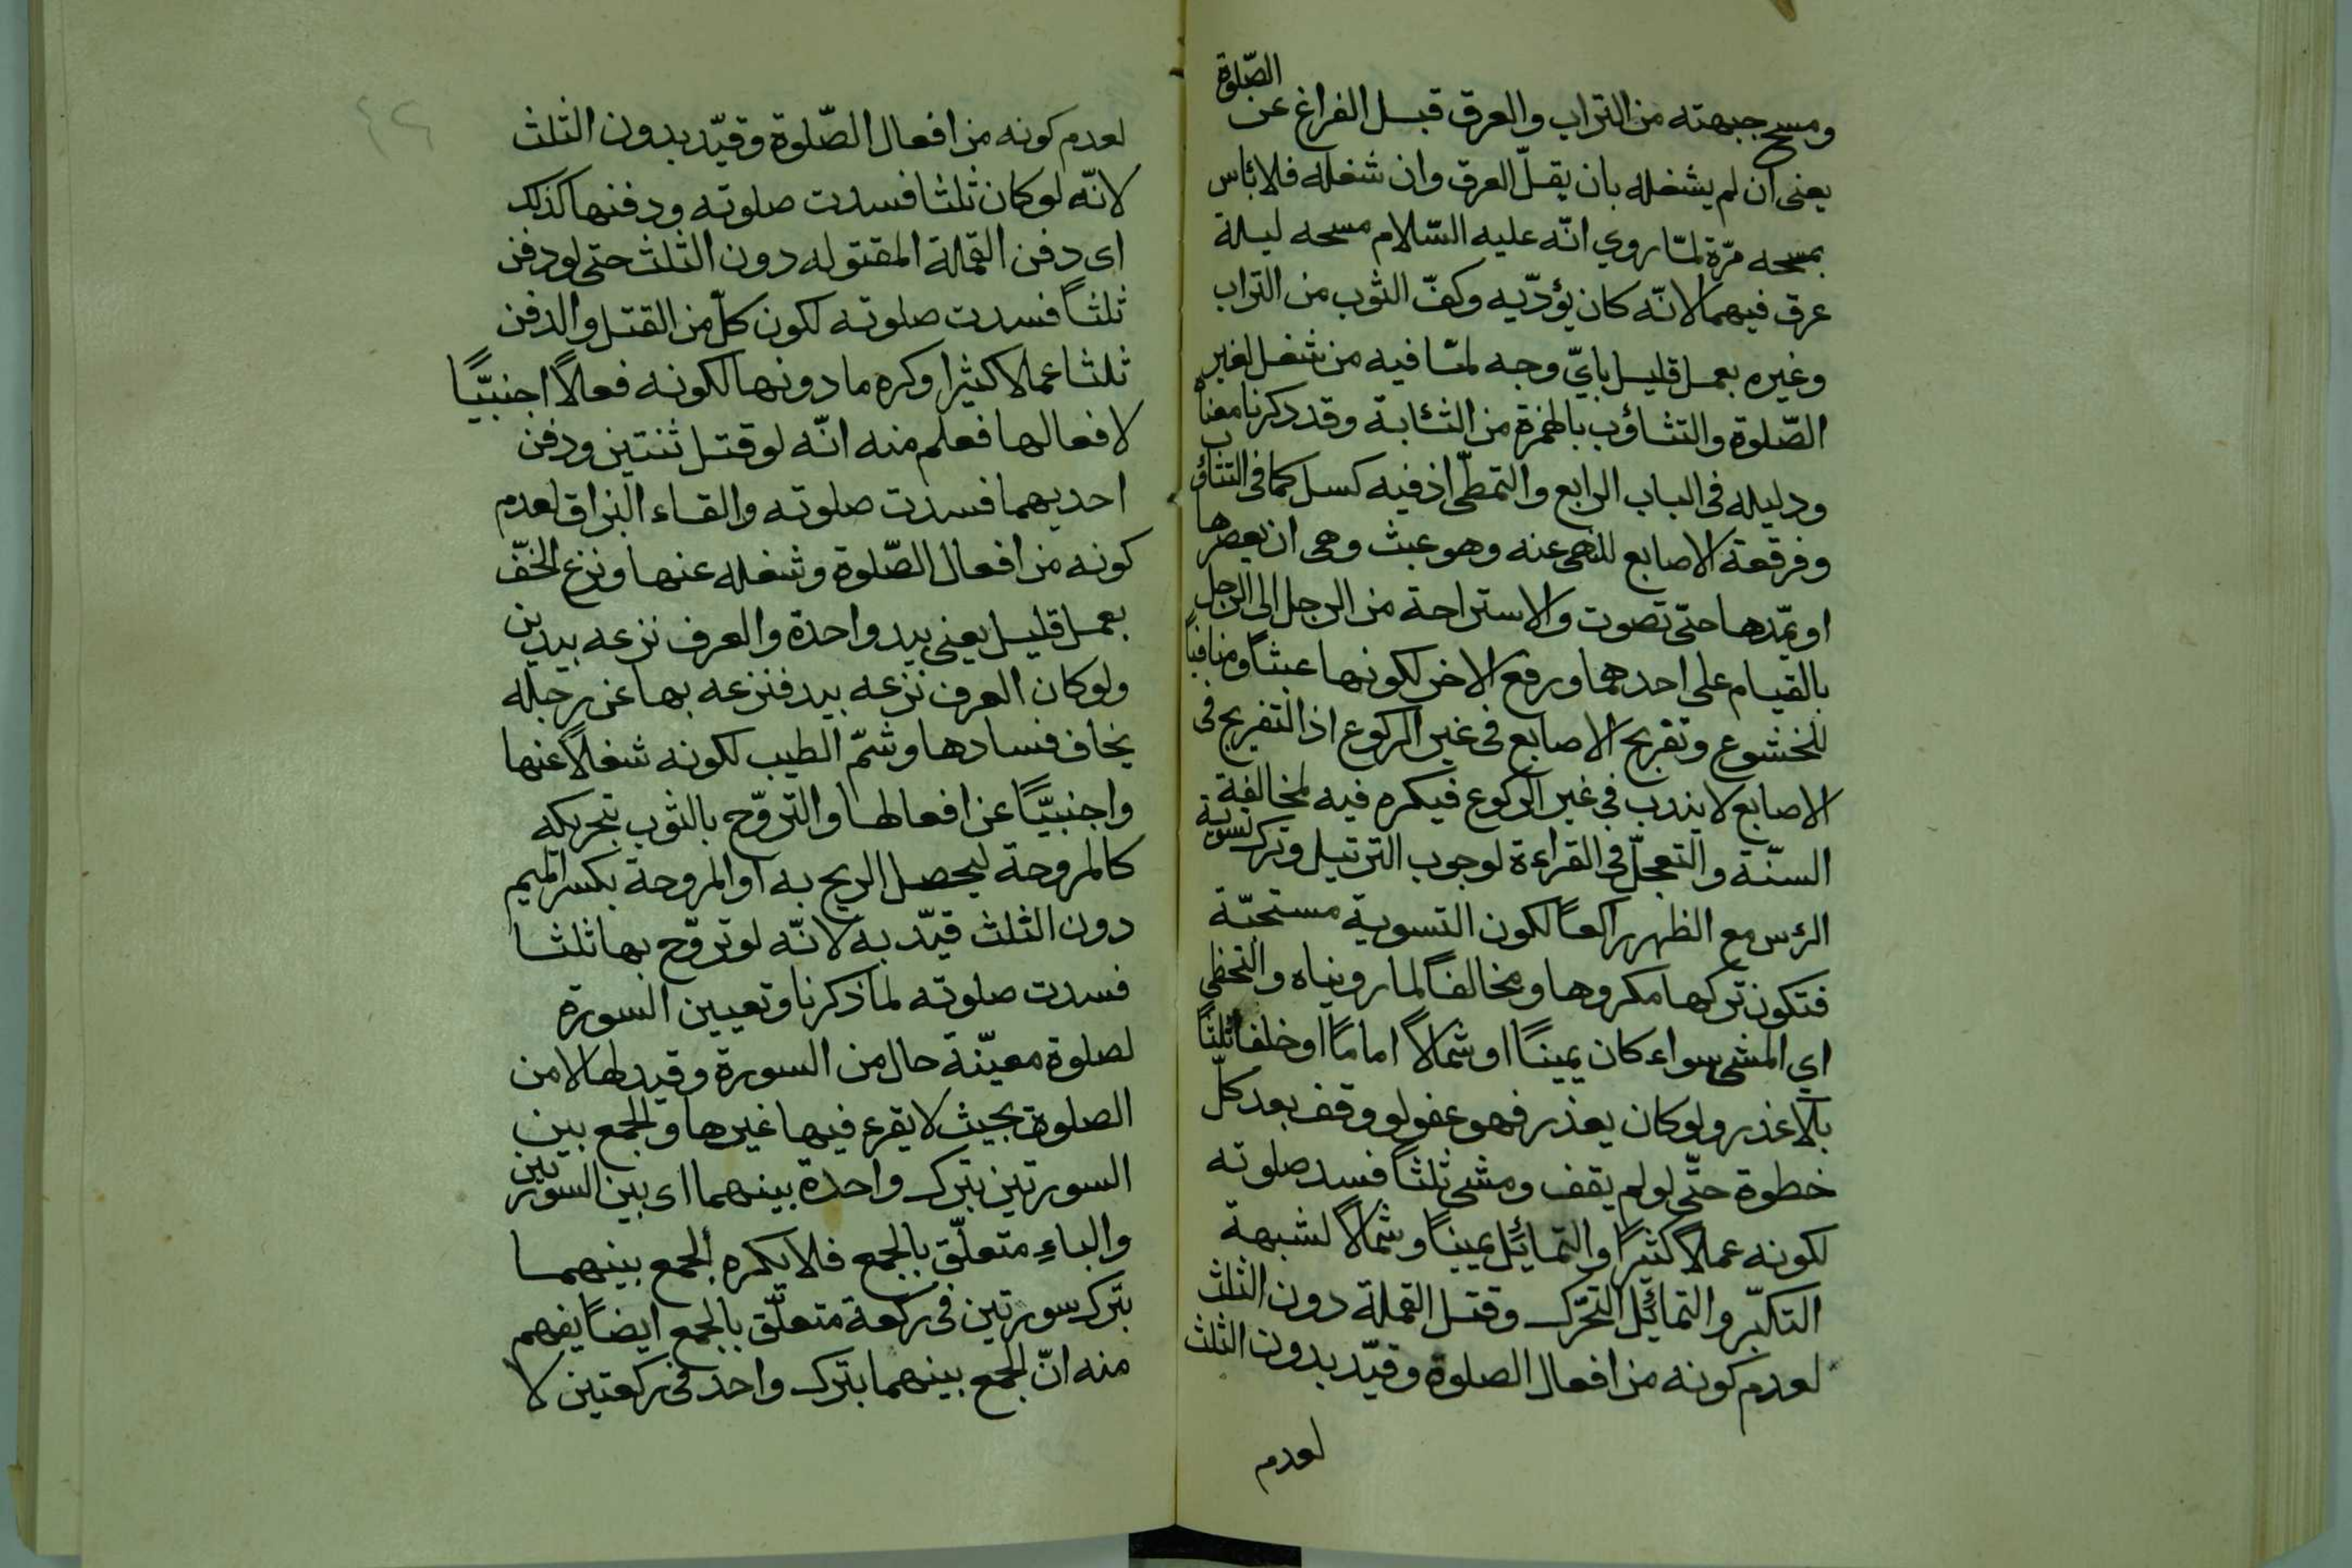 ومسح جبهته من التراب والعرق قبل الفراغ عن الصّلوة
يعنى ان لم يشغله بان يقلّ العرق وان شغله فلا بأس
بمسحه مرّة لمّا روي انّه عليه السّلام مسحه ليلة
عرق فيهما لانّه كان يؤدّيه وكفّ الثوب من التراب
وغيره بعمل قليل بايّ وجه لمّا فيه من شغل لغير
الصّلوة والتثاؤب بالهمزة من الثئابة وقد ذكرنا معناه
ودليله فى الباب الرابع والتمطّى اذ فيه كسل كما فى التثاؤب
وفرقعة الاصابع للنهى عنه وهو عبث وهى ان يعصرها
او يمّدها حتى تصوت والاستراحة من الرجل الى الرجل
بالقيام على احدهما ورفع الاخر لكونها عبثاً ومنافياً
للخشوع وتفريج الاصابع فى غير الركوع اذ التفريج فى
الاصابع لا يندب فى غير الركوع فيكره فيه لمخالفة
السنّة والتعجّل فى القراءة لوجوب الترتيل وترك تسوية
الرٔس مع الظهر راكعاً لكون التسوية مستحبّة
فتكون تركها مكروها ومخالفاً لما رويناه والتخطى
اي المشى سواء كان يميناً او شمالاً اماماً او خلفا ثلثاً
بلا عذر ولو كان بعذر فهو عفو لو وقف بعد كلّ
خطوة حتّى لو لم يقف ومشى ثلثاً فسد صلوته
لكونه عملاً كثيراً والتمائل يميناً وشمالاً لشبهة
التكبّر والتمائل التحرّك وقتل القملة دون الثلث
لعدم كونه من افعال الصلوة وقيّد بدون الثلث
لعدم
لعدم كونه من افعال الصّلوة وقيّد بدون الثلث
لانّه لو كان ثلثا فسدت صلوته ودفنها كذلك
اى دفن القملة المقتوله دون الثلث حتى لو دفن
ثلثاً فسدت صلوته لكون كلّ من القتل والدفن
ثلثا عملا كثيرا وكره ما دونها لكونه فعلاً اجنبيّاً
لافعالها فعلم منه انّه لو قتل ثنتين ودفن
احديهما فسدت صلوته والقاء البزاق لعدم
كونه من افعال الصّلوة وشغله عنها ونزع الخفّ
بعمل قليل يعنى بيد واحدة والعرف نزعه بيدين
ولو كان العرف نزعه بيد فنزعه بها عن رجله
يخاف فسادها وشمّ الطيب لكونه شغلاً عنها
واجنبيّاً عن افعالها والتروّح بالثوب بتحريكه
كالمروحة ليحصل الريح به او المروحة بكسر الميم
دون الثلث قيّد به لانّه لو تروّح بها ثلثا
فسدت صلوته لما ذكرنا وتعيين السورة
لصلوة معيّنة حال من السورة وقيد لها لا من
الصلوة بحيث لا يقرء فيها غيرها والجمع بين
السورتين بترك واحدة بينهما اى بين السورتين
والباء متعلّق بالجمع فلا يكره الجمع بينهما
بترك سورتين فى ركعة متعلّق بالجمع ايضاً يفهم
منه انّ الجمع بينهما بترك واحد فى ركعتين لا